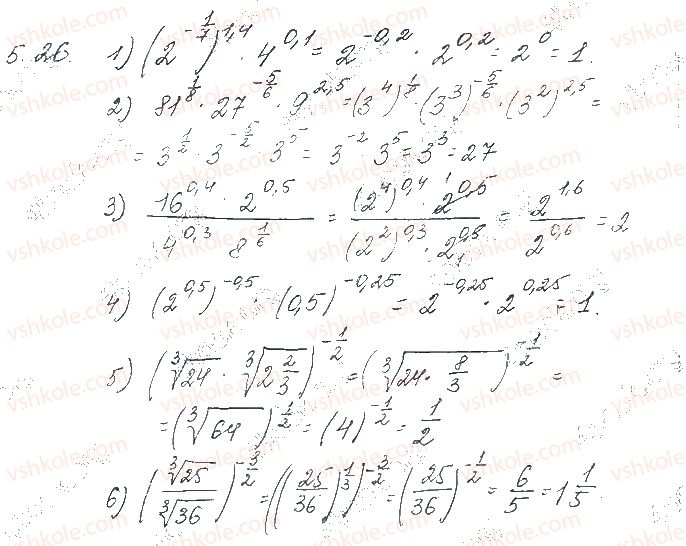 5.26. 1) (2^{-1/7})^{1,4} · 4^{0,1} = 2^{-0,2} · 2^{0,2} = 2^0 = 1.
2) 81^{1/8} · 27^{-5/6} · 9^{2,5} = (3^4)^{1/8} · (3^3)^{-5/6} · (3^2)^{2,5} =
= 3^{1/2} · 3^{-5/2} · 3^5 = 3^{-2} · 3^5 = 3^3 = 27
3) (16^{0,4} · 2^{0,5}) / (4^{0,3} 8^{1/6}) = ((2^4)^{0,4} · 2^{0,5}) / ((2^2)^{0,3} · 2^{0,5}) = 2^{1,6} / 2^{0,6} = 2
4) (2^{0,5})^{-0,5} · (0,5)^{-0,25} = 2^{-0,25} · 2^{0,25} = 1.
5) (∛24 · ∛(2 2/3))^{-1/2} = (∛(24 · 8/3))^{-1/2} =
= (∛64)^{-1/2} = (4)^{-1/2} = 1/2
6) (∛25 / ∛36)^{-3/2} = ((25/36)^{1/3})^{-3/2} = (25/36)^{-1/2} = 6/5 = 1 1/5